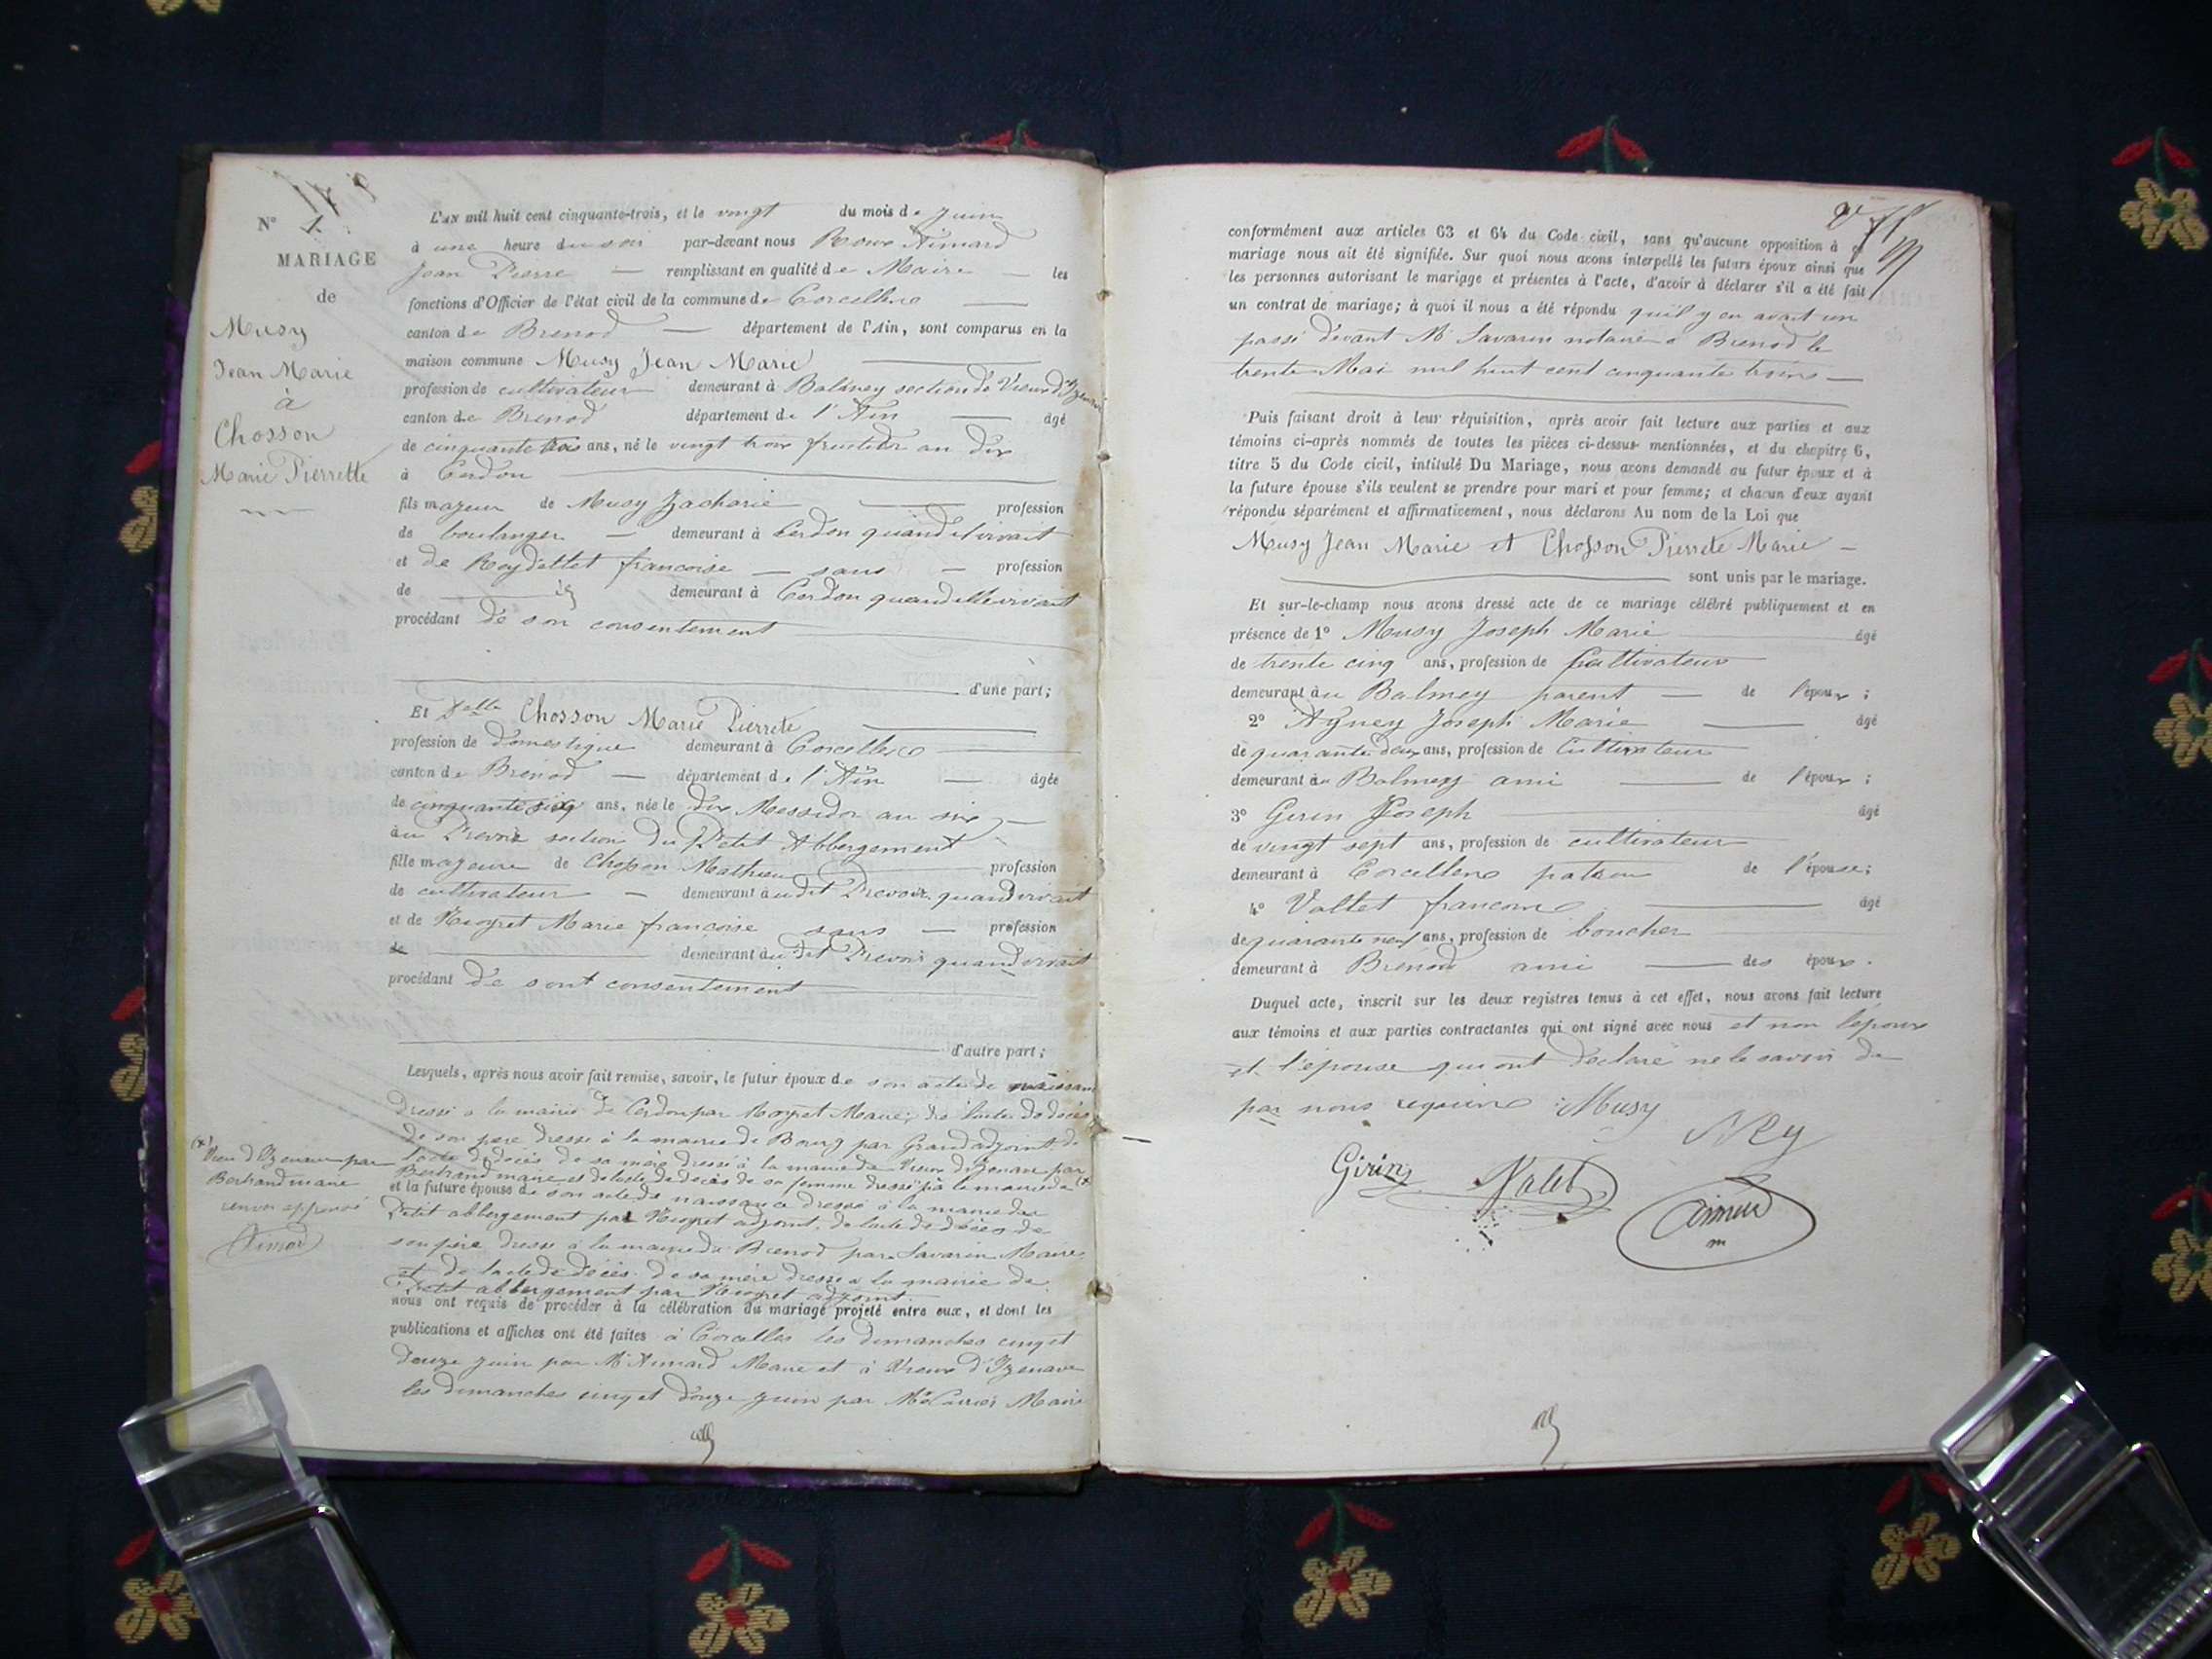 N° 1
MARIAGE
de
Musy
Jean Marie
à
Chosson
Marie Pierrette
L'an mil huit cent cinquante-trois, et le vingt du mois de Juin
à une heure du soir par-devant nous Roux Aimard
Jean Pierre remplissant en qualité de Maire les
fonctions d'Officier de l'état civil de la commune de Corcelles
canton de Brenod département de l'Ain, sont comparus en la
maison commune Musy Jean Marie
profession de cultivateur demeurant à Balmey section de Vieux d'Izenave
canton de Brenod département de l'Ain âgé
de cinquante ans, né le vingt trois fructidor an dix
à Cerdon
fils majeur de Musy Zacharie profession
de boulanger demeurant à Cerdon quand il vivait
et de Reydellet francoise sans profession
de demeurant à Cerdon quand elle vivait
procédant de son consentement
d'une part;
Et Delle Chosson Marie Pierrete
profession de domestique demeurant à Corcelles
canton de Brenod département de l'Ain âgée
de cinquante ans, née le dix Messidor an six
au section du Petit Abbergement
fille majeure de Chosson Mathieu profession
de cultivateur demeurant audit quand vivait
et de Marie francoise sans profession
de demeurant audit quand vivait
procédant de sont consentement
d'autre part;
Lesquels, après nous avoir fait remise, savoir, le futur époux de son acte de naissance
dressé a la mairie de Cerdon par Maire, de l'acte de décès
de son père dressé à la mairie de Bourg par adjoint de
l'acte de décès de sa mère dressé à la mairie de Vieux d'Izenave par
Bertrand maire et de l'acte de décès de sa femme dressé à la mairie de (x)
(x) Vieu d'Izenave par
Bertrand maire
renvoi approuvé
Aimard
et la future épouse de son acte de naissance dressé à la mairie du
Petit abbergement par adjoint, de l'acte de décès de
son père dressé à la mairie de Brenod par Savarin Maire
et de l'acte de décès de sa mère dressé a la mairie de
Petit abbergement par adjoint.
nous ont requis de procéder à la célébration du mariage projeté entre eux, et dont les
publications et affiches ont été faites à Corcelles les dimanches cinq et
douze juin par Mr Aimard Maire et à Vieux d'Izenave
les dimanches cinq et douze juin par Mr Maire
conformément aux articles 63 et 64 du Code civil, sans qu'aucune opposition à ce
mariage nous ait été signifiée. Sur quoi nous avons interpellé les futurs époux ainsi que
les personnes autorisant le mariage et présentes à l'acte, d'avoir à déclarer s'il a été fait
un contrat de mariage; à quoi il nous a été répondu qu'il y en avait un
passé devant Mr Savarin notaire a Brenod le
trente Mai mil huit cent cinquante trois
Puis faisant droit à leur réquisition, après avoir fait lecture aux parties et aux
témoins ci-après nommés de toutes les pièces ci-dessus mentionnées, et du chapitre 6,
titre 5 du Code civil, intitulé Du Mariage, nous avons demandé au futur époux et à
la future épouse s'ils veulent se prendre pour mari et pour femme; et chacun d'eux ayant
répondu séparément et affirmativement, nous déclarons Au nom de la Loi que
Musy Jean Marie et Chosson Pierrete Marie
sont unis par le mariage.
Et sur-le-champ nous avons dressé acte de ce mariage célébré publiquement et en
présence de 1° Musy Joseph Marie âgé
de trente cinq ans, profession de Cultivateur
demeurant au Balmey parent de l'époux;
2° Joseph Marie âgé
de quarante deux ans, profession de Cultivateur
demeurant au Balmey ami de l'époux;
3° Girin Joseph âgé
de vingt sept ans, profession de cultivateur
demeurant à Corcelles patron de l'épouse;
4° Vallet francois âgé
de quarante neuf ans, profession de boucher
demeurant à Brenod ami des époux.
Duquel acte, inscrit sur les deux registres tenus à cet effet, nous avons fait lecture
aux témoins et aux parties contractantes qui ont signé avec nous et non l'époux
et l'épouse qui ont déclaré ne le savoir de
par nous requins Musy
Girin Valet
Aimard